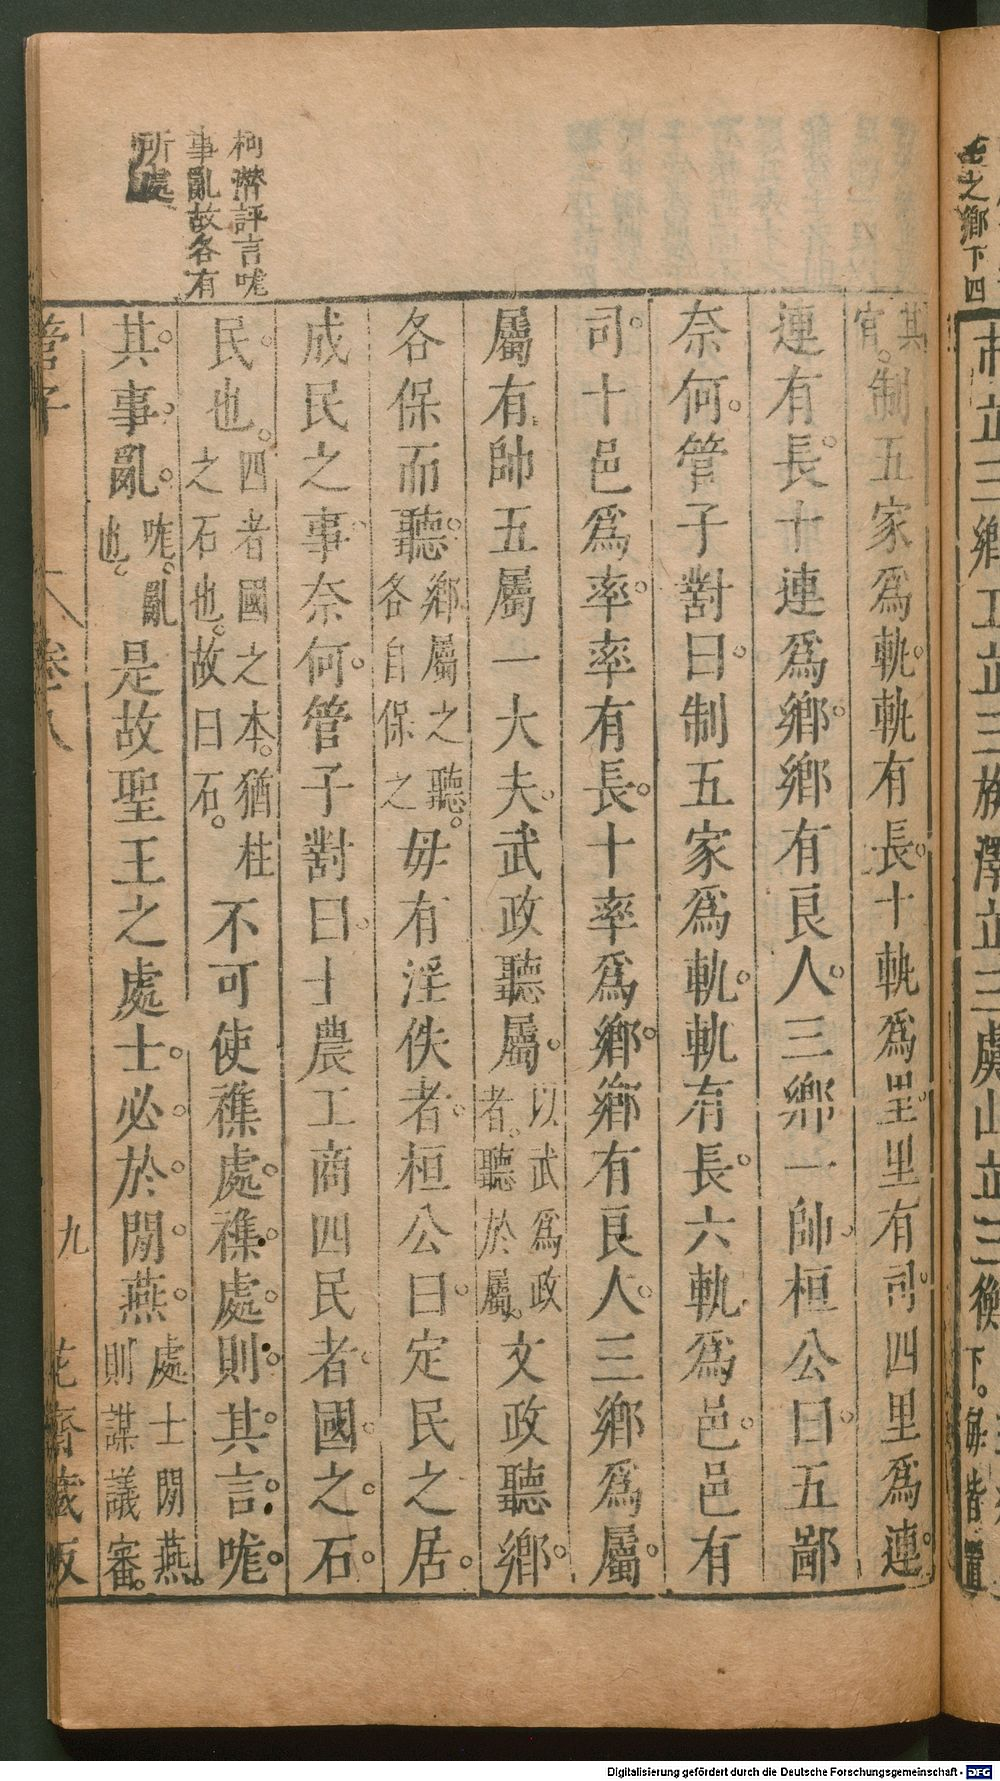 柯潛評言哤
事亂故各有
所處
其官制五家爲軌軌有長十軌爲里里有司四里爲連
連有長十連爲鄉鄉有良人三鄉一帥桓公曰五鄙
奈何管子對曰制五家爲軌軌有長六軌爲邑邑有
司十邑爲率率有長十率爲鄉鄉有良人三鄉爲屬
屬有帥五屬一大夫武政聽屬以武爲政者聽於屬文政聽鄉
各保而聽鄉屬之聽各自保之毋有淫佚者桓公曰定民之居
成民之事奈何管子對曰士農工商四民者國之石
民也四者國之本猶柱之石也故曰石不可使襍處襍處則其言哤
其事亂哤亂也是故聖王之處士必於閒燕處士閒燕則謀議審
管子 卷八 九 花齋藏板
之鄉下四
市立三鄉工立三族澤立三虞山立三衡
下每皆置
Digitalisierung gefördert durch die Deutsche Forschungsgemeinschaft - DFG